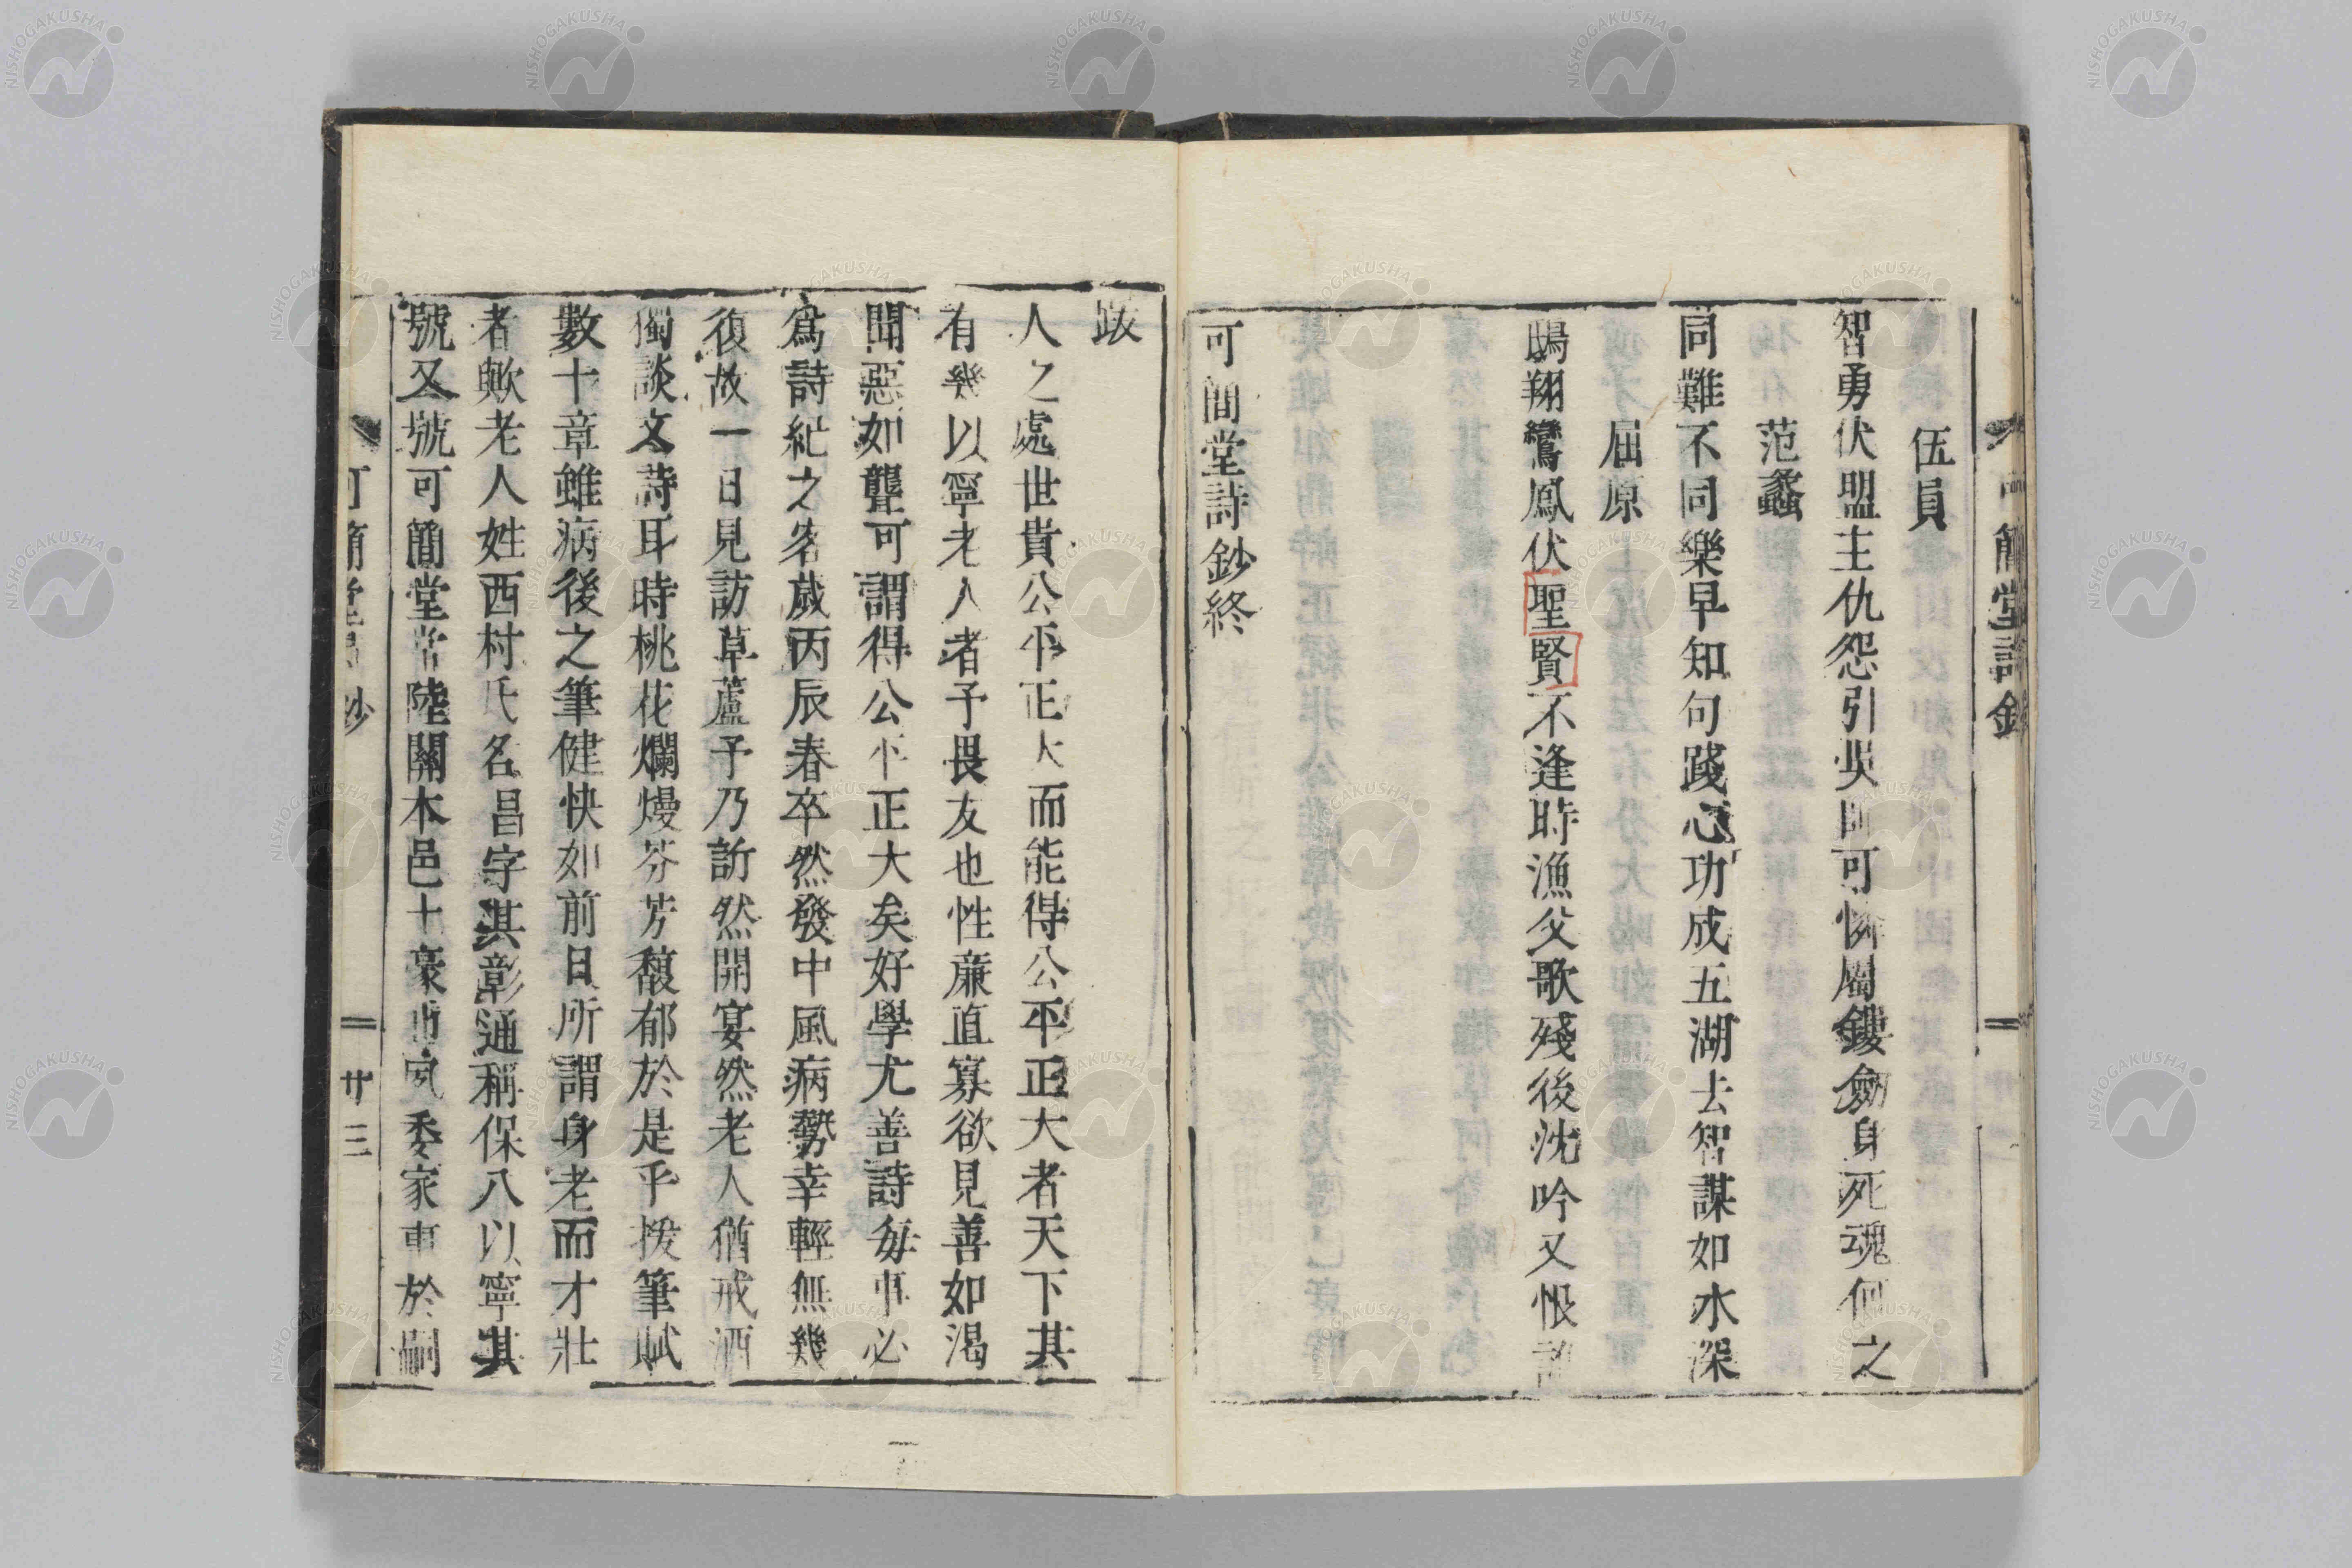 可簡堂詩鈔
伍員
智勇伏盟主仇怨引吳師可憐屬鏤劍身死魂何之
范蠡
同難不同樂早知句踐心功成五湖去智謀如水深
屈原
鴟翔鸞鳳伏聖賢不逢時漁父歌殘後沈吟又恨誰
可簡堂詩鈔終
跋
人之處世貴公平正大而能得公平正大者天下其
有幾以寧老人者予畏友也性廉直寡欲見善如渇
聞惡如聾可謂得公平正大矣好學尤善詩每事必
爲詩紀之客歲丙辰春卒然發中風病勢幸輕無幾
復故一日見訪草蘆予乃訢然開宴然老人猶戒酒
獨談文詩耳時桃花爛熳芬芳馥郁於是乎援筆賦
數十章雖病後之筆健快如前日所謂身老而才壯
者歟老人姓西村氏名昌字其彰通稱保八以寧其
號又號可簡堂常陸關本邑十豪也夙委家事於嗣
可簡堂詩鈔
廿三
NISHOGAKUSHA